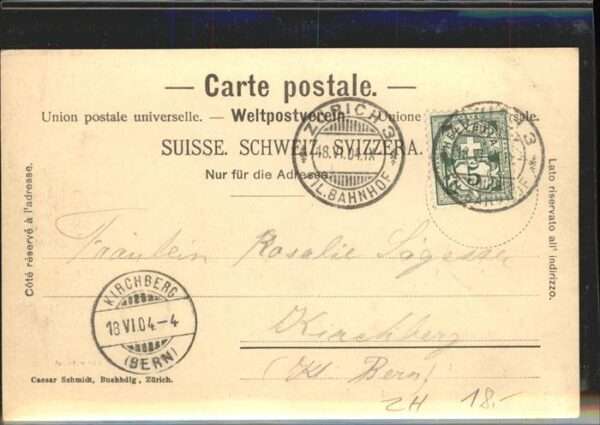 — Carte postale. —
Union postale universelle. — Weltpostverein. Unione
SUISSE. SCHWEIZ. SVIZZERA.
Nur für die Adresse.
ZÜRICH 3
18.VI.04.IX
FIL. BAHNHOF
5
Côté réservé à l'adresse.
Lato riservato all' indirizzo.
Fräulein Rosalie
Kirchberg
(Kt. Bern)
KIRCHBERG
18 VI 04 – 4
(BERN)
Caesar Schmidt, Buchhdlg., Zürich.
ZH 18.-